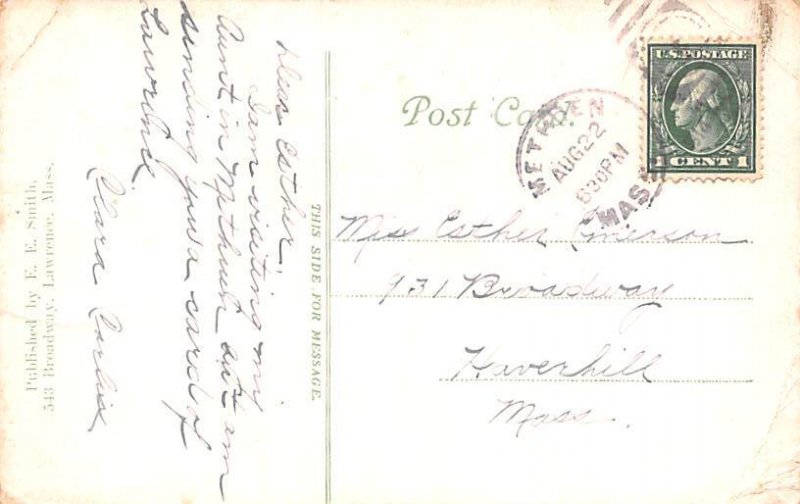 Dear Esther,
I am visiting my
Aunt in Methuen but am
sending you a card of
Lawrence.
Clara
THIS SIDE FOR MESSAGE.
Published by E. E. Smith,
543 Broadway, Lawrence, Mass.
Post Card.
METHUEN
AUG 22
630 PM
MASS
U.S. POSTAGE
1 CENT 1
Miss Esther Emerson
931 Broadway
Haverhill
Mass.